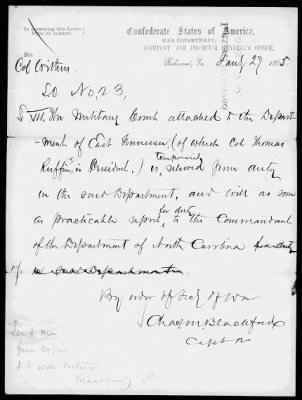 In answering this Letter
State its number
Confederate States of America,
WAR DEPARTMENT,
ADJUTANT AND INSPECTOR GENERAL'S OFFICE.
No.
Richmond, Va. Jany 29 1865
Col Withers
SO No. 23,
VIII The Military Court attached to the Depart-
-ment of East Tennessee, (of which Col Thomas
temporarily
Ruffin is President,) is relieved from duty
in the said Department, and will as soon
for duty
as practicable report to the Commandant
of the Department of North Carolina for duty
in said Department
By order of Secy of War
Chas M Blackford
Capt